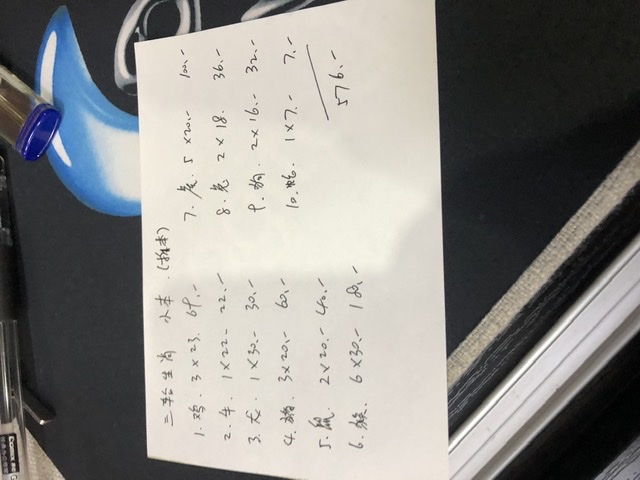 二轮生肖 小本
1. 鸡. 3×23. 69.-
2. 牛. 1×22.- 22.-
3. 龙. 1×30.- 30.-
4. 猪 3×20.- 60.-
5. 鼠. 2×20.- 40.-
6. 猴. 6×30.- 180.-
7. 虎. 5×20.- 100.-
8. 兔 2×18. 36.-
9. 狗. 2×16.- 32.-
10. 蛇. 1×7.- 7.-
576.-